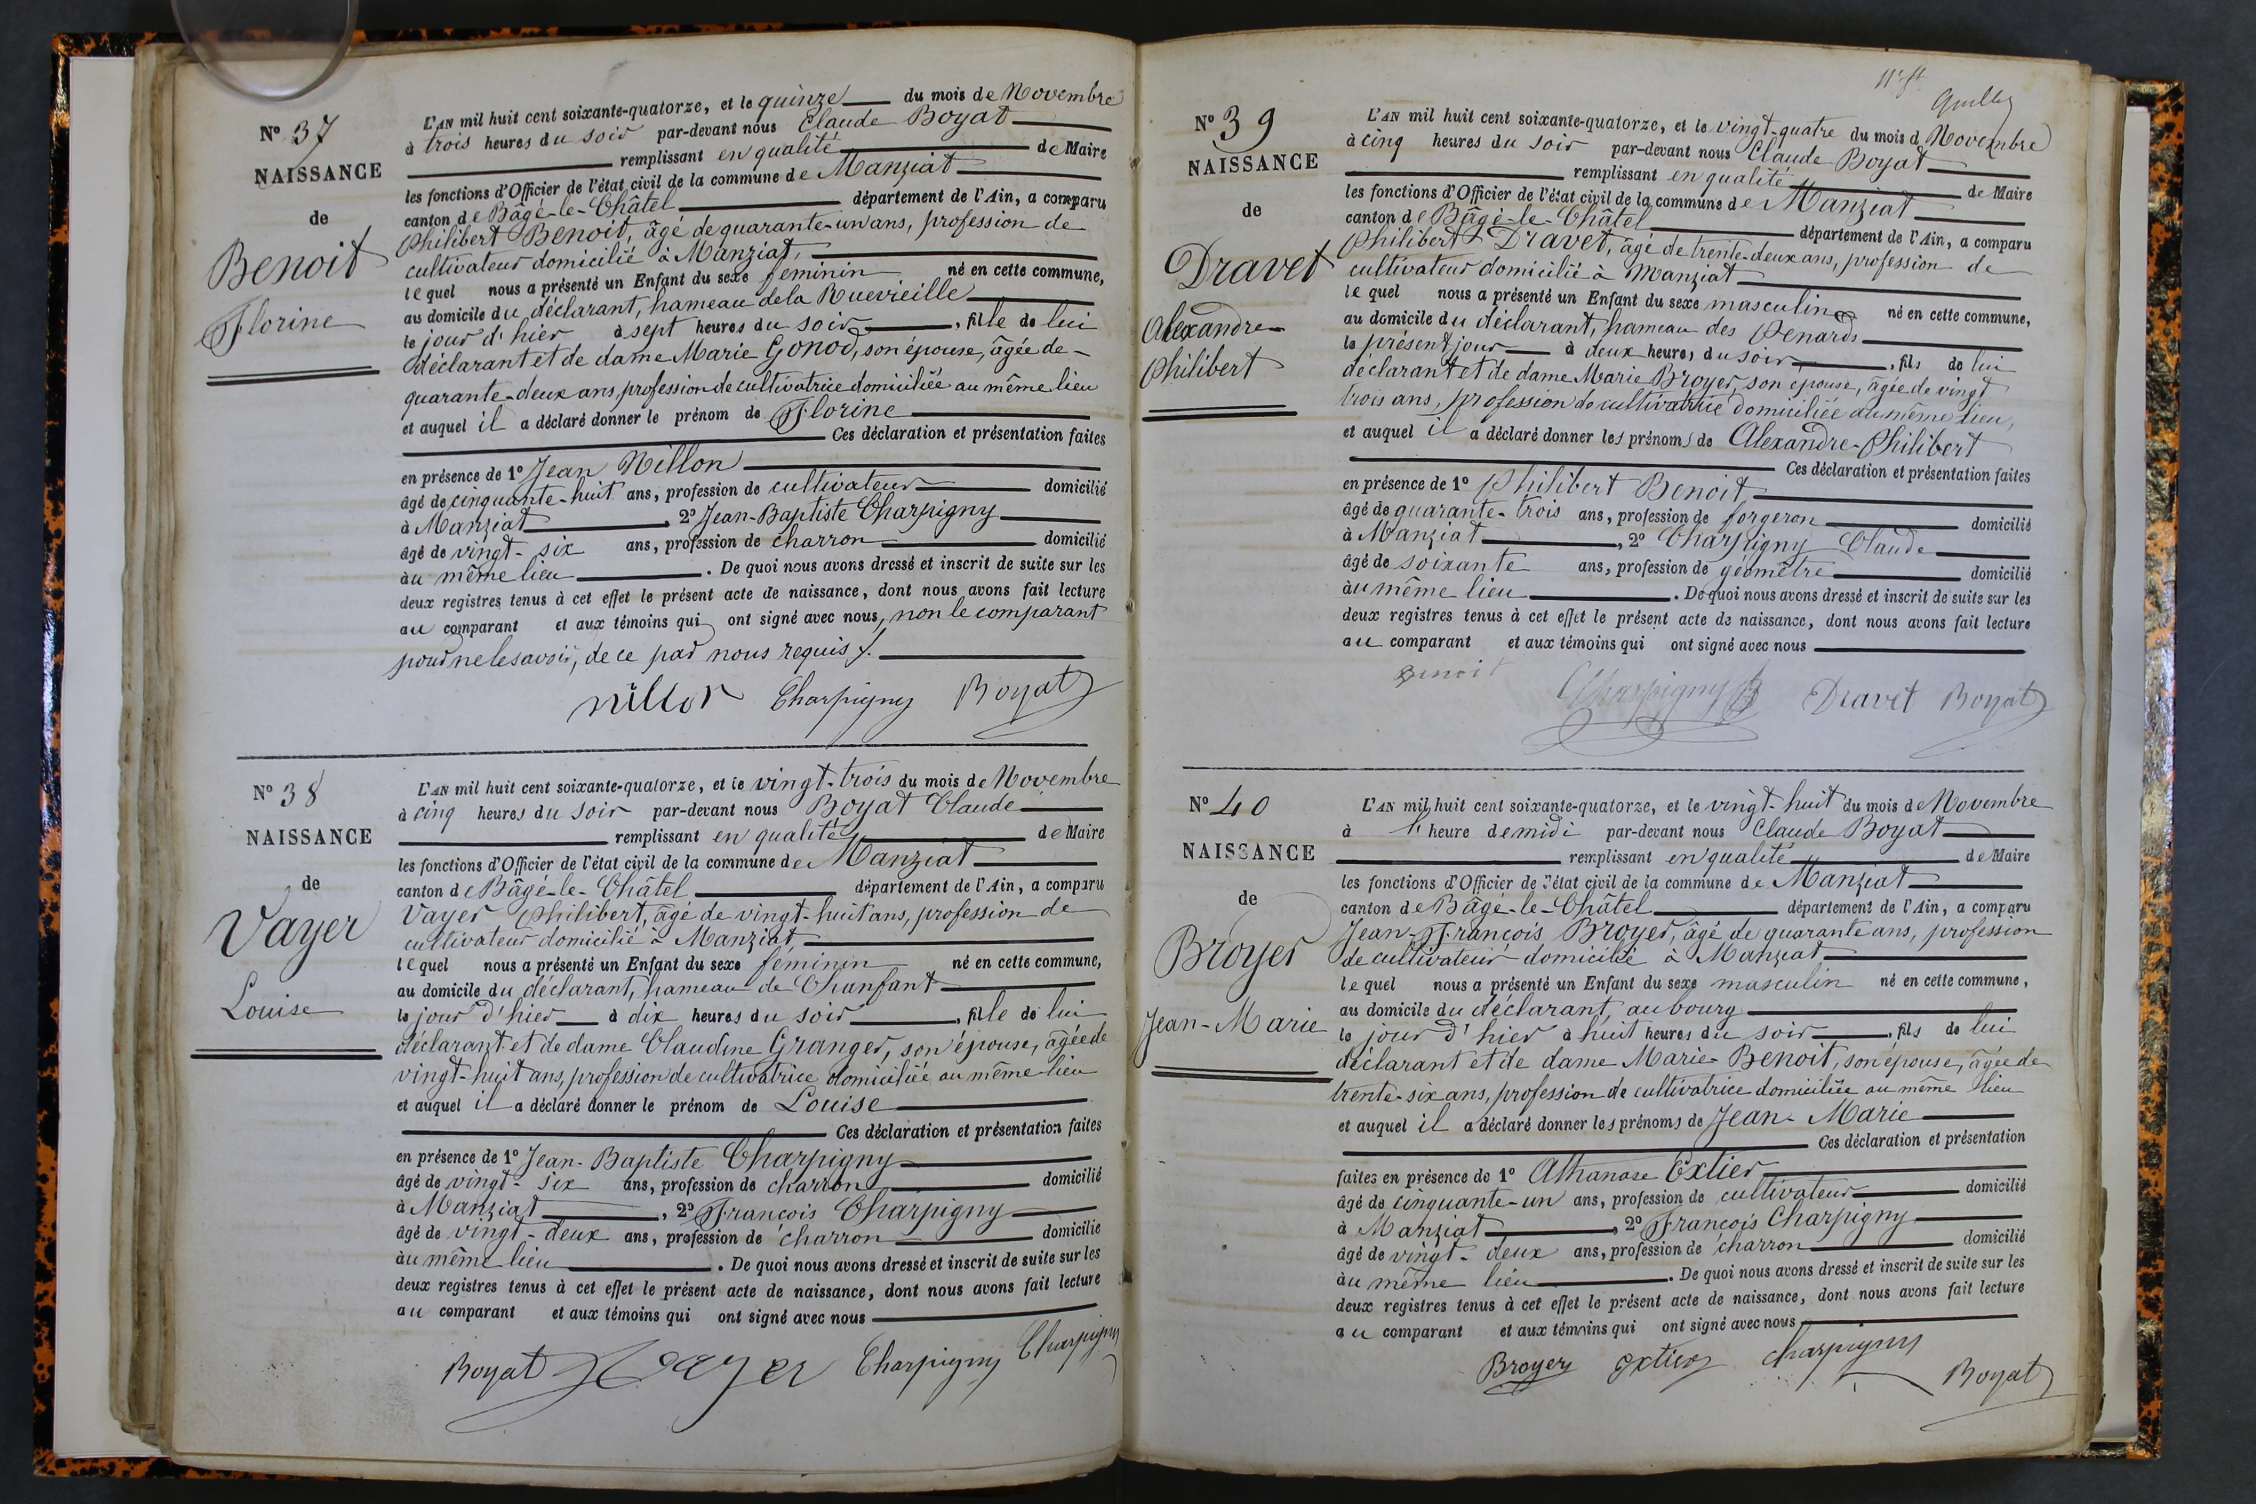 N° 37
NAISSANCE
de
Benoit
Florine
L'AN mil huit cent soixante-quatorze, et le quinze du mois de Novembre
à trois heures du soir par-devant nous Claude Boyat
remplissant en qualité de Maire
les fonctions d'Officier de l'état civil de la commune de Manziat
canton de Bâgé-le-Châtel département de l'Ain, a comparu
Philibert Benoit, âgé de quarante-un ans, profession de
cultivateur domicilié à Manziat,
lequel nous a présenté un Enfant du sexe féminin né en cette commune,
au domicile du déclarant, hameau de la Ruevieille
le jour d'hier à sept heures du soir, fille de lui
déclarant et de dame Marie Gonod, son épouse, âgée de
quarante-deux ans, profession de cultivatrice domiciliée au même lieu
et auquel il a déclaré donner le prénom de Florine
Ces déclaration et présentation faites
en présence de 1° Jean Nillon
âgé de cinquante-huit ans, profession de cultivateur domicilié
à Manziat, 2° Jean-Baptiste Charpigny
âgé de vingt-six ans, profession de charron domicilié
au même lieu. De quoi nous avons dressé et inscrit de suite sur les
deux registres tenus à cet effet le présent acte de naissance, dont nous avons fait lecture
au comparant et aux témoins qui ont signé avec nous, non le comparant
pour ne le savoir, de ce par nous requis.
nillon Charpigny Boyat
N° 38
NAISSANCE
de
Vayer
Louise
L'AN mil huit cent soixante-quatorze, et le vingt-trois du mois de Novembre
à cinq heures du soir par-devant nous Boyat Claude
remplissant en qualité de Maire
les fonctions d'Officier de l'état civil de la commune de Manziat
canton de Bâgé-le-Châtel département de l'Ain, a comparu
Vayer Philibert, âgé de vingt-huit ans, profession de
cultivateur domicilié à Manziat,
lequel nous a présenté un Enfant du sexe féminin né en cette commune,
au domicile du déclarant, hameau de Chanfant
le jour d'hier à dix heures du soir, fille de lui
déclarant et de dame Claudine Granger, son épouse, âgée de
vingt-huit ans, profession de cultivatrice domiciliée au même lieu
et auquel il a déclaré donner le prénom de Louise
Ces déclaration et présentation faites
en présence de 1° Jean-Baptiste Charpigny
âgé de vingt-six ans, profession de charron domicilié
à Manziat, 2° François Charpigny
âgé de vingt-deux ans, profession de charron domicilié
au même lieu. De quoi nous avons dressé et inscrit de suite sur les
deux registres tenus à cet effet le présent acte de naissance, dont nous avons fait lecture
au comparant et aux témoins qui ont signé avec nous
Boyat Vayer Charpigny Charpigny
N° 39
NAISSANCE
de
Dravet
Alexandre
Philibert
L'AN mil huit cent soixante-quatorze, et le vingt-quatre du mois d Novembre
à cinq heures du soir par-devant nous Claude Boyat
remplissant en qualité de Maire
les fonctions d'Officier de l'état civil de la commune de Manziat
canton de Bâgé-le-Châtel département de l'Ain, a comparu
Philibert Dravet, âgé de trente-deux ans, profession de
cultivateur domicilié à Manziat
lequel nous a présenté un Enfant du sexe masculin né en cette commune,
au domicile du déclarant, hameau des Penards
le présent jour à deux heures du soir, fils de lui
déclarant et de dame Marie Broyer, son épouse, âgée de vingt
trois ans, profession de cultivatrice domiciliée au même lieu,
et auquel il a déclaré donner les prénoms de Alexandre-Philibert
Ces déclaration et présentation faites
en présence de 1° Philibert Benoit
âgé de quarante-trois ans, profession de forgeron domicilié
à Manziat, 2° Charpigny Claude
âgé de soixante ans, profession de géomètre domicilié
au même lieu. De quoi nous avons dressé et inscrit de suite sur les
deux registres tenus à cet effet le présent acte de naissance, dont nous avons fait lecture
au comparant et aux témoins qui ont signé avec nous
Benoit Charpigny Dravet Boyat
N° 40
NAISSANCE
de
Broyer
Jean-Marie
L'AN mil huit cent soixante-quatorze, et le vingt-huit du mois de Novembre
à l'heure de midi par-devant nous Claude Boyat
remplissant en qualité de Maire
les fonctions d'Officier de l'état civil de la commune de Manziat
canton de Bâgé-le-Châtel département de l'Ain, a comparu
Jean-François Broyer, âgé de quarante ans, profession
de cultivateur domicilié à Manziat
lequel nous a présenté un Enfant du sexe masculin né en cette commune,
au domicile du déclarant, au bourg
le jour d'hier à huit heures du soir, fils de lui
déclarant et de dame Marie Benoit, son épouse, âgée de
trente-six ans, profession de cultivatrice domiciliée au même lieu
et auquel il a déclaré donner les prénoms de Jean-Marie
Ces déclaration et présentation
faites en présence de 1° Athanase Extier
âgé de cinquante-un ans, profession de cultivateur domicilié
à Manziat, 2° François Charpigny
âgé de vingt-deux ans, profession de charron domicilié
au même lieu. De quoi nous avons dressé et inscrit de suite sur les
deux registres tenus à cet effet le présent acte de naissance, dont nous avons fait lecture
au comparant et aux témoins qui ont signé avec nous
Broyer Extier Charpigny Boyat